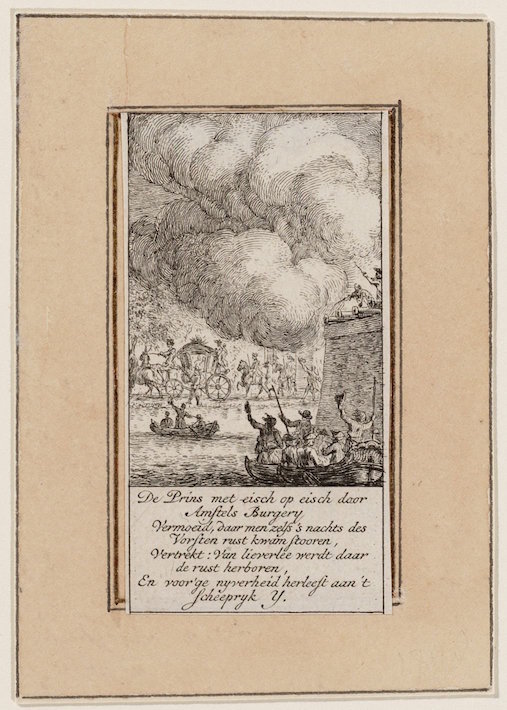 De Prins met eisch op eisch door
Amstels Burgery
Vermoeid, daar men zelfs 's nachts des
Vorsten rust kwam stooren,
Vertrekt: Van lieverlee werdt daar
de rust herboren,
En voor'ge nyverheid herleeft aan 't
scheepryk Y.